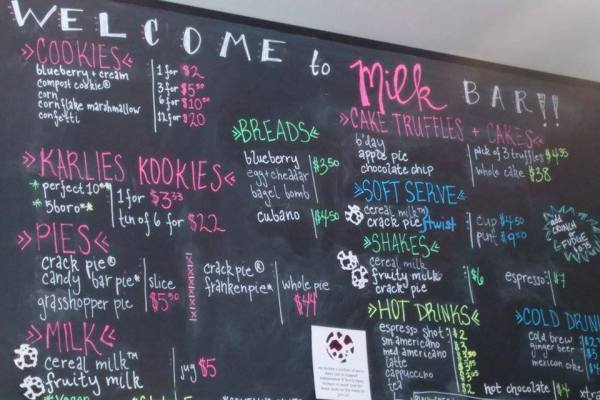 WELCOME to Milk BAR!!
»COOKIES«
blueberry + cream
compost cookie®
corn
cornflake marshmallow
confetti
1 for $2
3 for $5
6 for $10
12 for $20
»KARLIES KOOKIES«
*perfect 10**
*5boro**
1 for $3
tin of 6 for $22
»PIES«
crack pie®
candy bar pie*
grasshopper pie
slice
$5
crack pie®
frankenpie*
whole pie
$44
»MILK«
cereal milk™
fruity milk
jug $5
»BREADS«
blueberry
egg + cheddar
bagel bomb
$3.50
cubano
$4.50
»CAKE TRUFFLES + CAKES«
b'day
apple pie
chocolate chip
pick of 3 truffles $4.35
whole cake $38
»SOFT SERVE«
cereal milk™
crack pie
twist
cup $4.50
pint $9.50
add CRUNCH or FUDGE
»SHAKES«
cereal milk
fruity milk
crack pie
$6
espresso $7
»HOT DRINKS«
espresso shot $2
sm americano
med americano
latte
cappuccino
tea $2
hot chocolate $4
»COLD DRIN
cold brew
ginger beer
mexican coke